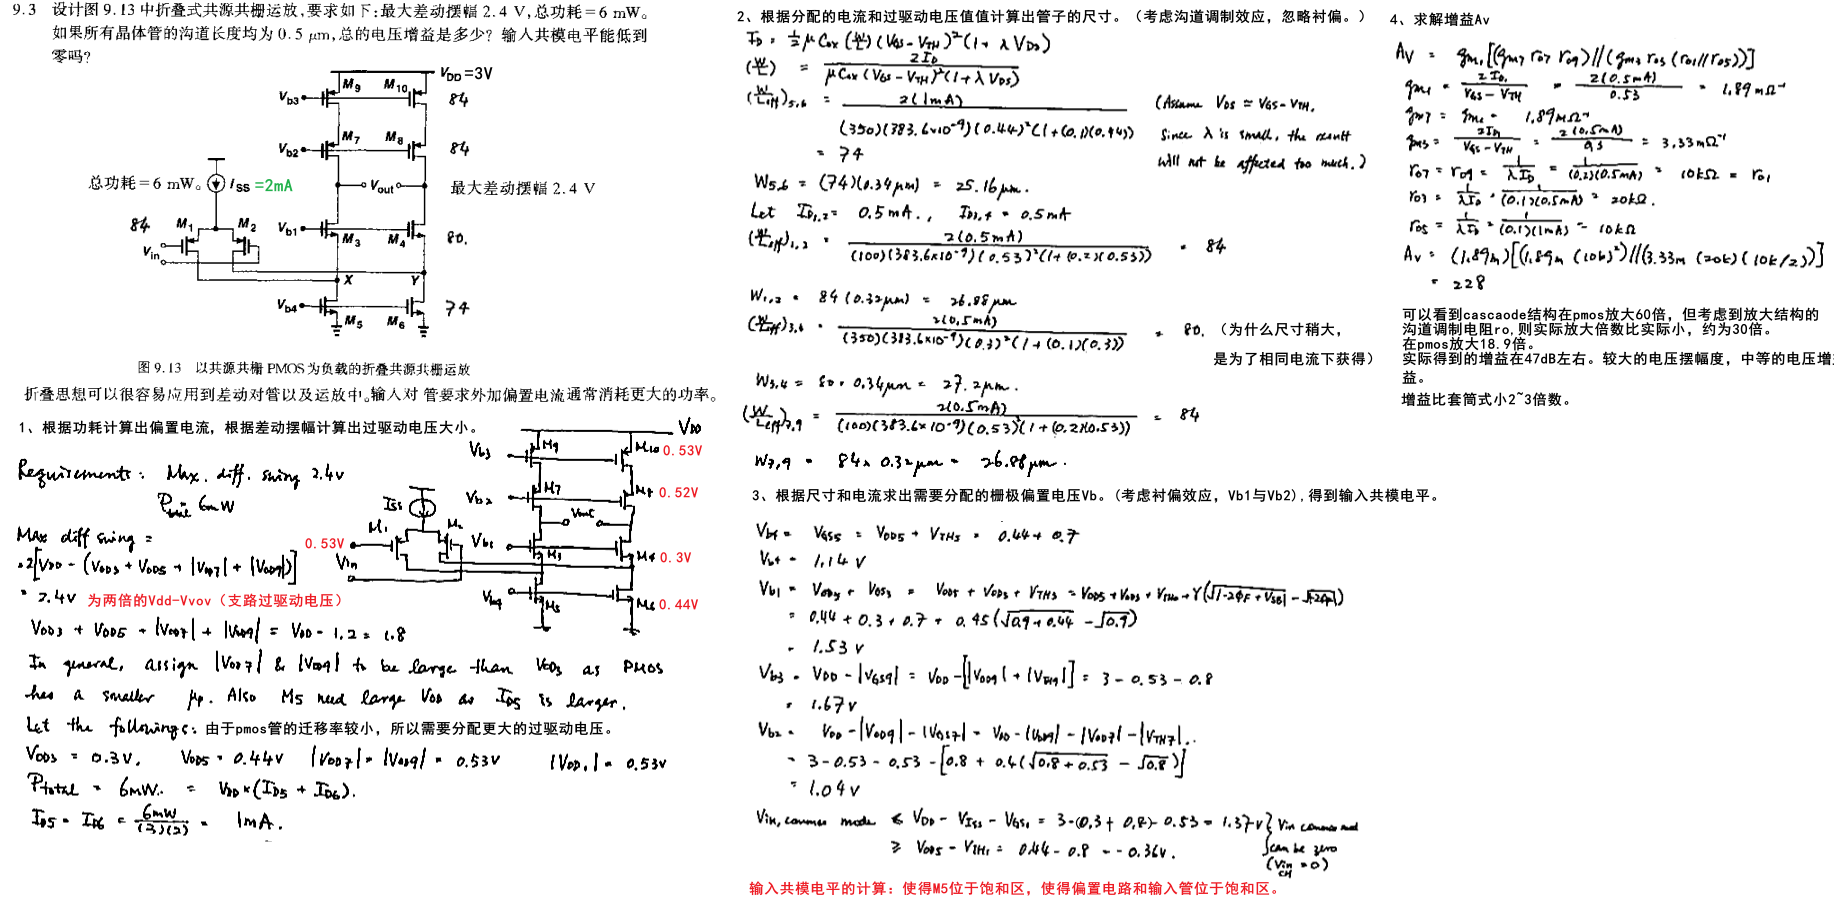 9.3 设计图 9.13 中折叠式共源共栅运放,要求如下:最大差动摆幅 2.4 V,总功耗=6 mW。
如果所有晶体管的沟道长度均为 0.5 μm,总的电压增益是多少? 输入共模电平能低到
零吗?
V_DD =3V
V_b3
M_9
M_10
84
V_b2
M_7
M_8
84
总功耗=6 mW。
I_SS =2mA
V_out
最大差动摆幅 2.4 V
84
M_1
M_2
V_in
V_b1
M_3
M_4
80.
X
Y
V_b4
M_5
M_6
74
图 9.13 以共源共栅 PMOS 为负载的折叠共源共栅运放
折叠思想可以很容易应用到差动对管以及运放中。输入对 管要求外加偏置电流通常消耗更大的功率。
1、根据功耗计算出偏置电流, 根据差动摆幅计算出过驱动电压大小。
Requirements: Max. diff. swing 2.4V
P_total = 6mW
Max diff swing =
= 2[V_DD - (V_OD3 + V_OD5 + |V_OD7| + |V_OD9|)]
= 2.4V 为两倍的Vdd-Vvov (支路过驱动电压)
V_OD3 + V_OD5 + |V_OD7| + |V_OD9| = V_DD - 1.2 = 1.8
In general, assign |V_OD7| & |V_OD9| to be large than V_OD3 as PMOS
has a smaller μp. Also M5 need large V_OD as I_D5 is larger.
Let the followings: 由于pmos管的迁移率较小, 所以需要分配更大的过驱动电压。
V_OD3 = 0.3V. V_OD5 = 0.44V |V_OD7| = |V_OD9| = 0.53V |V_OD1| = 0.53V
P_total = 6mW. = V_DD × (I_D5 + I_D6).
I_D5 = I_D6 = 6mW / (3)(2) = 1mA.
V_DD
V_b3
M9
M10
0.53V
V_b2
M7
0.52V
I_SS
V_out
M1
M2
0.53V
V_in
V_b1
M3
M4
0.3V
M5
M6
0.44V
2、根据分配的电流和过驱动电压值值计算出管子的尺寸。(考虑沟道调制效应, 忽略衬偏。)
I_D = 1/2 μ C_ox (W/L) (V_GS - V_TH)^2 (1 + λ V_DS)
(W/L) = 2I_D / μ C_ox (V_GS - V_TH)^2 (1 + λ V_DS)
(W/L_eff)_5,6 = 2(1mA) / (350)(383.6×10^-9)(0.44)^2(1+(0.1)(0.44))
(Assume V_DS ≈ V_GS - V_TH.
Since λ is small, the result
will not be affected too much.)
= 74
W_5,6 = (74)(0.34μm) = 25.16μm.
Let I_D1,2 = 0.5mA., I_D3,4 = 0.5mA
(W/L_eff)_1,2 = 2(0.5mA) / (100)(383.6×10^-9)(0.53)^2(1+(0.2)(0.53)) = 84
W_1,2 = 84(0.32μm) = 26.88μm
(W/L_eff)_3,4 = 2(0.5mA) / (350)(383.6×10^-9)(0.3)^2(1+(0.1)(0.3)) = 80. (为什么尺寸稍大,
是为了相同电流下获得)
W_3,4 = 80 × 0.34μm = 27.2μm.
(W/L_eff)_7,9 = 2(0.5mA) / (100)(383.6×10^-9)(0.53)^2(1+(0.2)(0.53)) = 84
W_7,9 = 84 × 0.32μm = 26.88μm.
3、根据尺寸和电流求出需要分配的栅极偏置电压Vb。(考虑衬偏效应, Vb1与Vb2),得到输入共模电平。
V_b4 = V_GS5 = V_OD5 + V_TH5 = 0.44 + 0.7
V_b4 = 1.14V
V_b1 = V_OD5 + V_GS3 = V_OD5 + V_OD3 + V_TH3 = V_OD5 + V_OD3 + V_TH0 + γ(√|-2φF + V_SB| - √|2φF|)
= 0.44 + 0.3 + 0.7 + 0.45(√(0.9+0.44) - √0.9)
= 1.53V
V_b3 = V_DD - |V_GS9| = V_DD - [|V_OD9| + |V_TH9|] = 3 - 0.53 - 0.8
= 1.67V
V_b2 = V_DD - |V_OD9| - |V_GS7| = V_DD - |V_OD9| - |V_OD7| - |V_TH7|.
= 3 - 0.53 - 0.53 - [0.8 + 0.4(√(0.8+0.53) - √0.8)]
= 1.04V
Vin, common mode ≤ V_DD - V_ISS - V_GS1 = 3-(0.3+0.8)-0.53 = 1.37V } Vin common mode
≥ V_OD5 - V_TH1 = 0.44 - 0.8 = -0.36V. can be zero
(Vin CM = 0)
输入共模电平的计算: 使得M5位于饱和区, 使得偏置电路和输入管位于饱和区。
4、求解增益Av
Av = gm1[(gm7 ro7 ro9)//(gm3 ro3 (ro1//ro5))]
gm1 = 2I_D1 / V_GS - V_TH = 2(0.5mA) / 0.53 = 1.89mΩ^-1
gm7 = gm1 = 1.89mΩ^-1
gm3 = 2I_D / V_GS - V_TH = 2(0.5mA) / 0.3 = 3.33mΩ^-1
ro7 = ro9 = 1/λI_D = 1/(0.2)(0.5mA) = 10kΩ = ro1
ro3 = 1/λI_D = 1/(0.1)(0.5mA) = 20kΩ.
ro5 = 1/λI_D = 1/(0.1)(1mA) = 10kΩ
Av = (1.89m)[(1.89m (10k)^2)//(3.33m (20k)(10k/2))]
= 228
可以看到cascaode结构在pmos放大60倍, 但考虑到放大结构的
沟道调制电阻ro,则实际放大倍数比实际小, 约为30倍。
在pmos放大18.9倍。
实际得到的增益在47dB左右。较大的电压摆幅度, 中等的电压增
益。
增益比套筒式小2~3倍数。